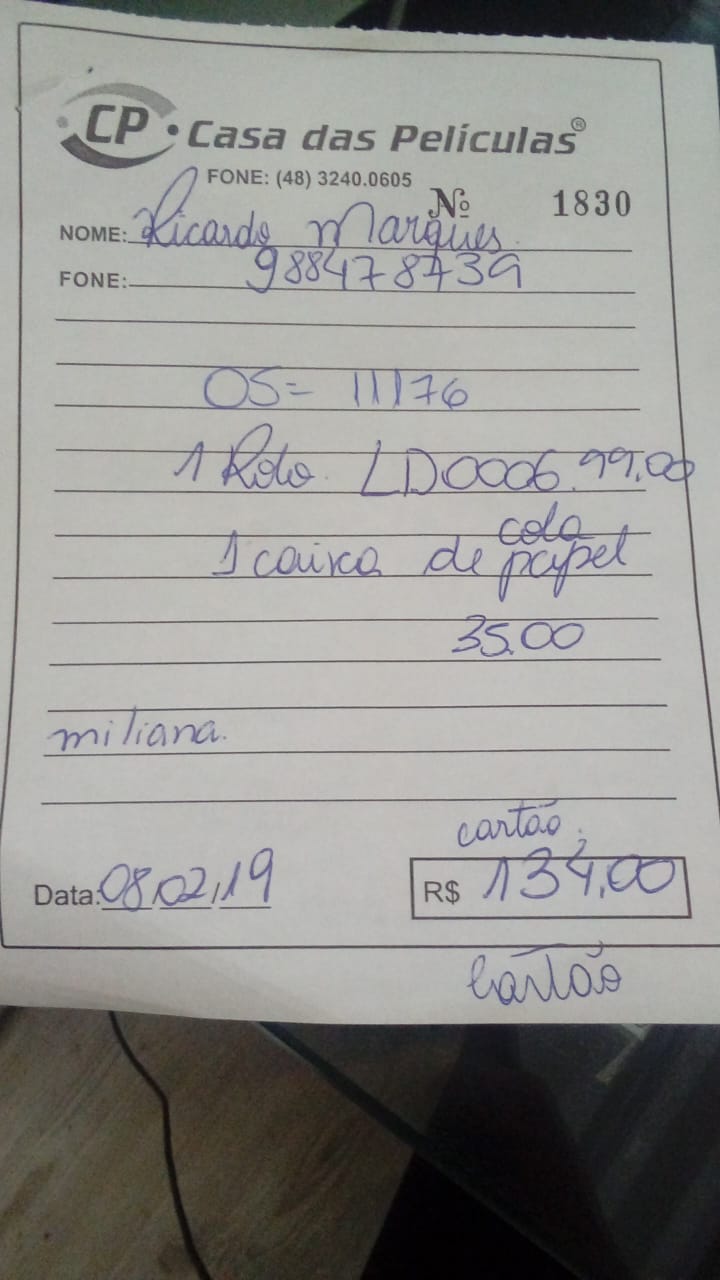 CP · Casa das Películas®
FONE: (48) 3240.0605
Nº 1830
NOME: Ricardo Marques
FONE: 988478739
OS= 11176
1 Rolo. LD0006.99,00
cola
1 caixa de papel
35.00
miliana.
cartão,
Data: 08,02,19 R$ 134,00
Cartão